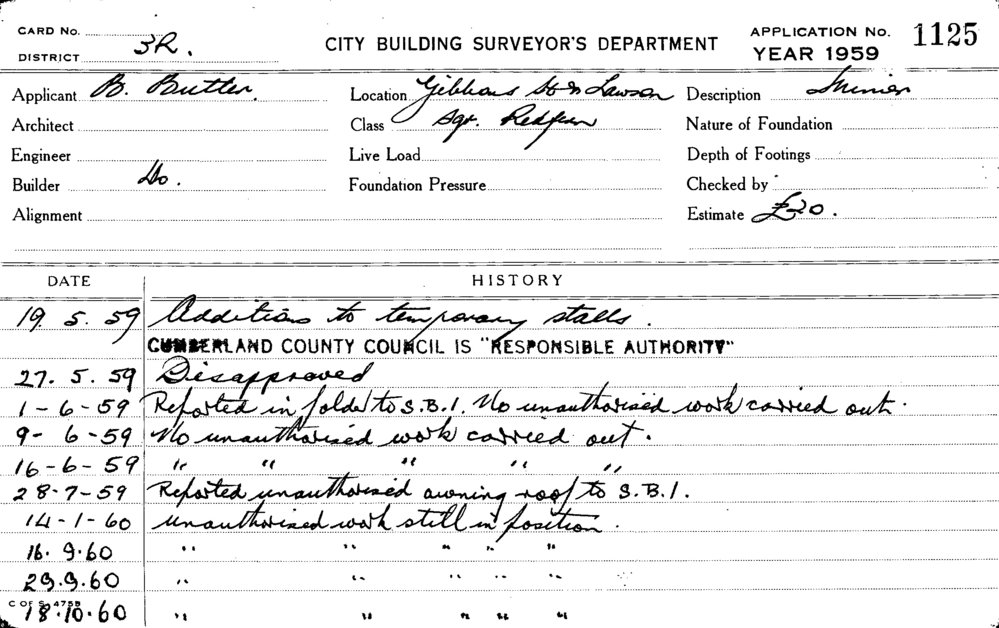 CARD No.
DISTRICT 3R.
CITY BUILDING SURVEYOR'S DEPARTMENT
APPLICATION No. 1125
YEAR 1959
Applicant B. Butler. Location Gibbons St & Lawson Description Minor
Architect Class Sqr. Redfern Nature of Foundation
Engineer Live Load Depth of Footings
Builder Do. Foundation Pressure Checked by
Alignment Estimate £20.
DATE HISTORY
19. 5. 59 Additions to temporary stalls.
CUMBERLAND COUNTY COUNCIL IS "RESPONSIBLE AUTHORITY"
27. 5. 59 Disapproved
1-6-59 Reported in folder to S.B.I. No unauthorised work carried out.
9-6-59 No unauthorised work carried out.
16-6-59 " " " " "
28-7-59 Reported unauthorised awning roof to S.B.I.
14-1-60 Unauthorised work still in position.
16.9.60 " " " " "
29.9.60 " " " " "
18.10.60 " " " " "
C OF S 4755